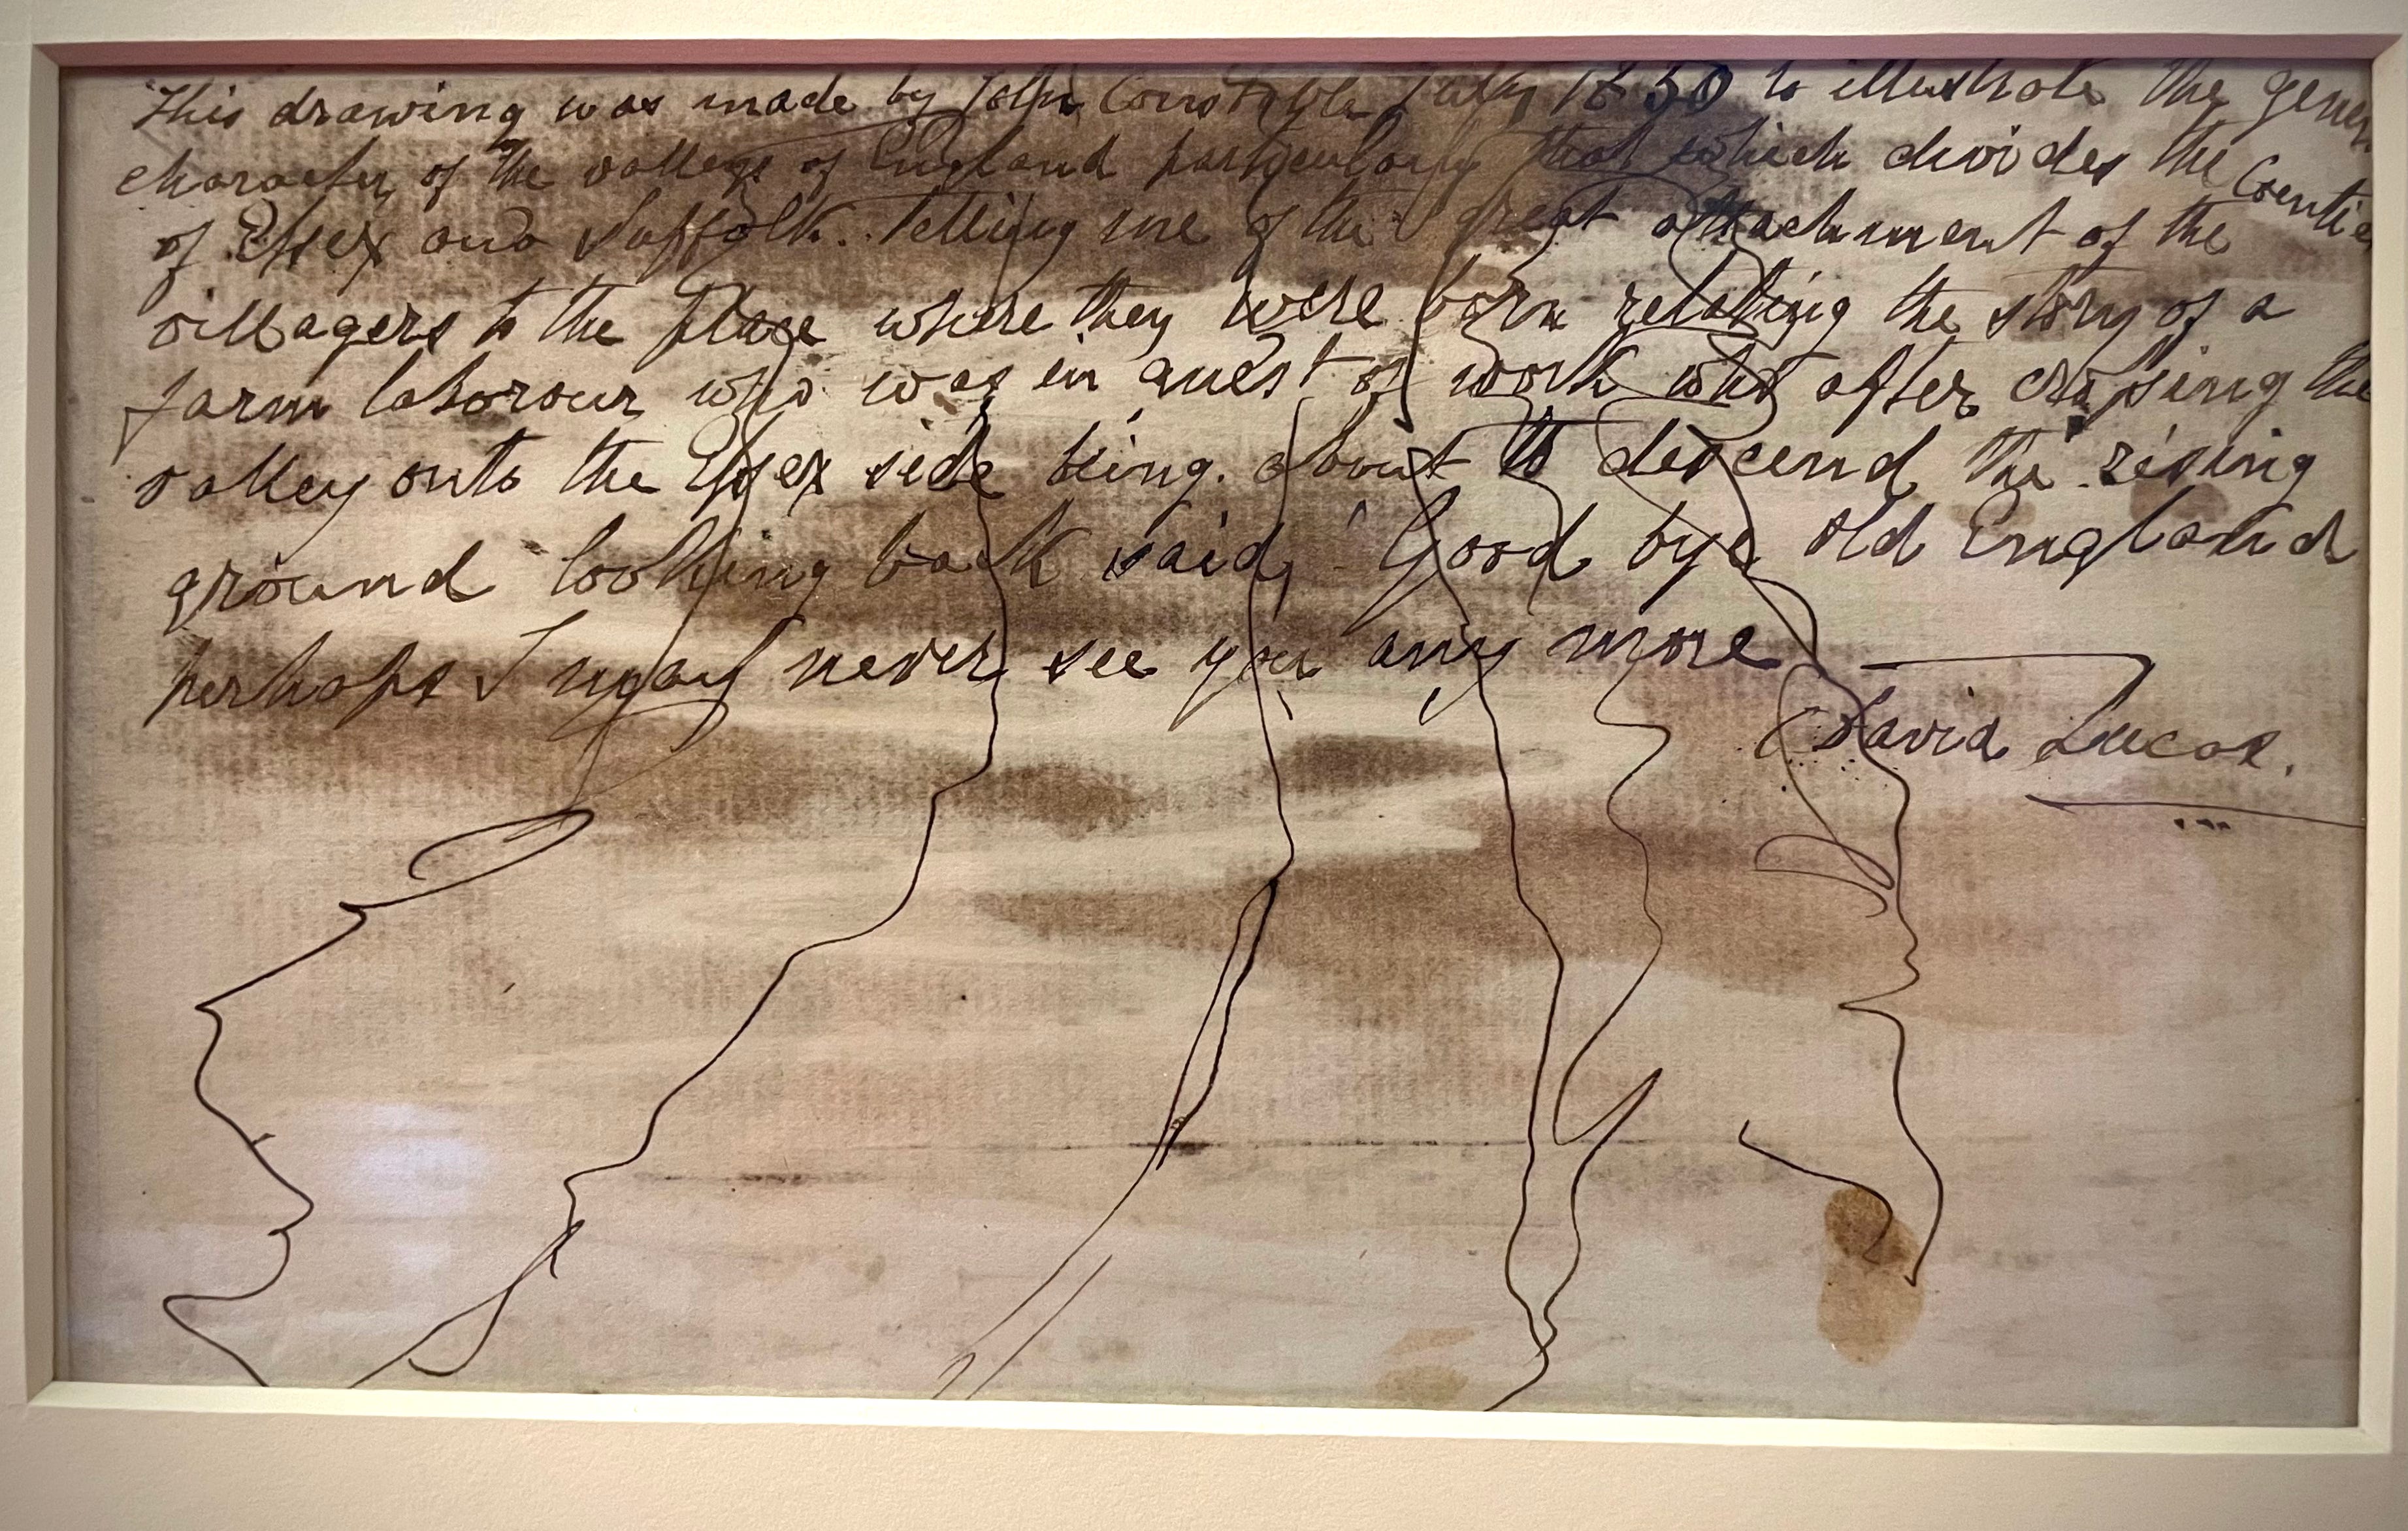 This drawing was made by John Constable July 1830 to illustrate the gener
character of the valleys of England particularly that which divides the Counties
of Essex and Suffolk. Telling me of the great attachment of the
villagers to the place where they were born relating the story of a
farm labourour who was in quest of work who after crossing the
valley onto the Essex side being. about to descend the rising
ground looking back said, ' Good bye old England
perhaps I may never see you any more '
David Lucas.